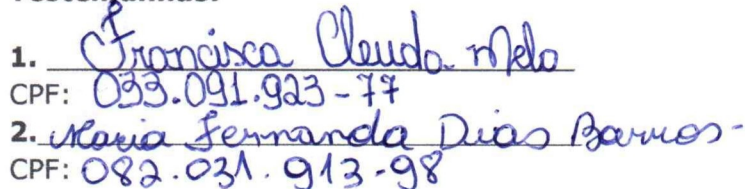 Testemunhas:
1. Francisca Cleuda Melo
CPF: 033.091.923-77
2. Maria Fernanda Dias Barros-
CPF: 082.031.913-98